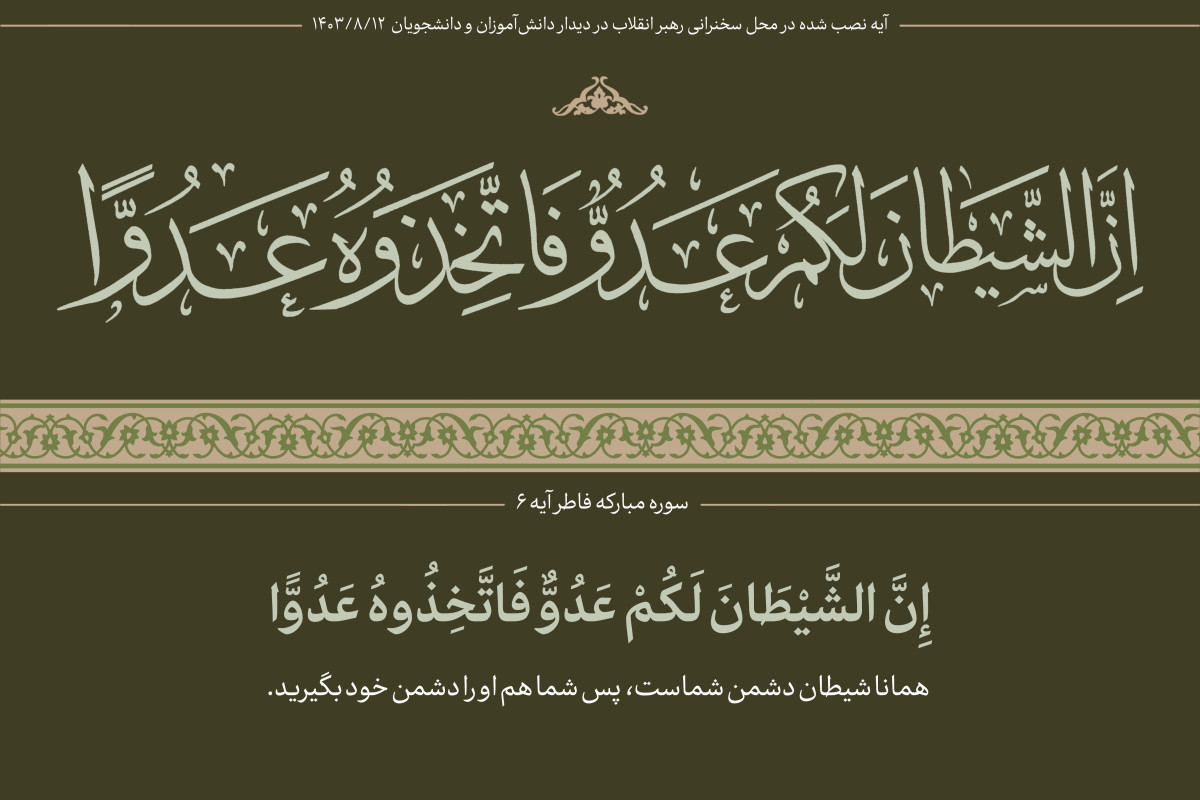 آیه نصب شده در محل سخنرانی رهبر انقلاب در دیدار دانش‌آموزان و دانشجویان ۱۴۰۳/۸/۱۲
اِنَّ الشَّیطانَ لَکُم عَدُوٌّ فَاتَّخِذوهُ عَدُوًّا
سوره مبارکه فاطر آیه ۶
إِنَّ الشَّيْطَانَ لَكُمْ عَدُوٌّ فَاتَّخِذُوهُ عَدُوًّا
همانا شیطان دشمن شماست، پس شما هم او را دشمن خود بگیرید.